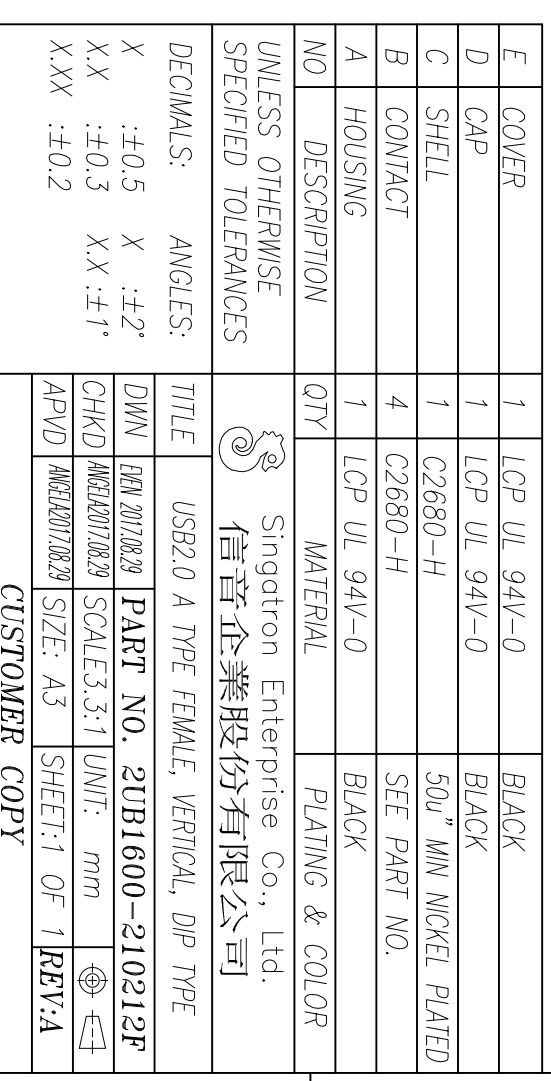 E COVER 1 LCP UL 94V-0 BLACK
D CAP 1 LCP UL 94V-0 BLACK
C SHELL 1 C2680-H 50u" MIN NICKEL PLATED
B CONTACT 4 C2680-H SEE PART NO.
A HOUSING 1 LCP UL 94V-0 BLACK
NO DESCRIPTION QTY MATERIAL PLATING & COLOR
UNLESS OTHERWISE
SPECIFIED TOLERANCES
DECIMALS: ANGLES:
X :±0.5 X :±2°
X.X :±0.3 X.X :±1°
X.XX :±0.2
Singatron Enterprise Co., Ltd.
信音企業股份有限公司
TITLE USB2.0 A TYPE FEMALE, VERTICAL, DIP TYPE
DWN EVEN 2017.08.29 PART NO. 2UB1600-210212F
CHKD ANGELA2017.08.29 SCALE3.3:1 UNIT: mm
APVD ANGELA2017.08.29 SIZE: A3 SHEET:1 OF 1 REV:A
CUSTOMER COPY